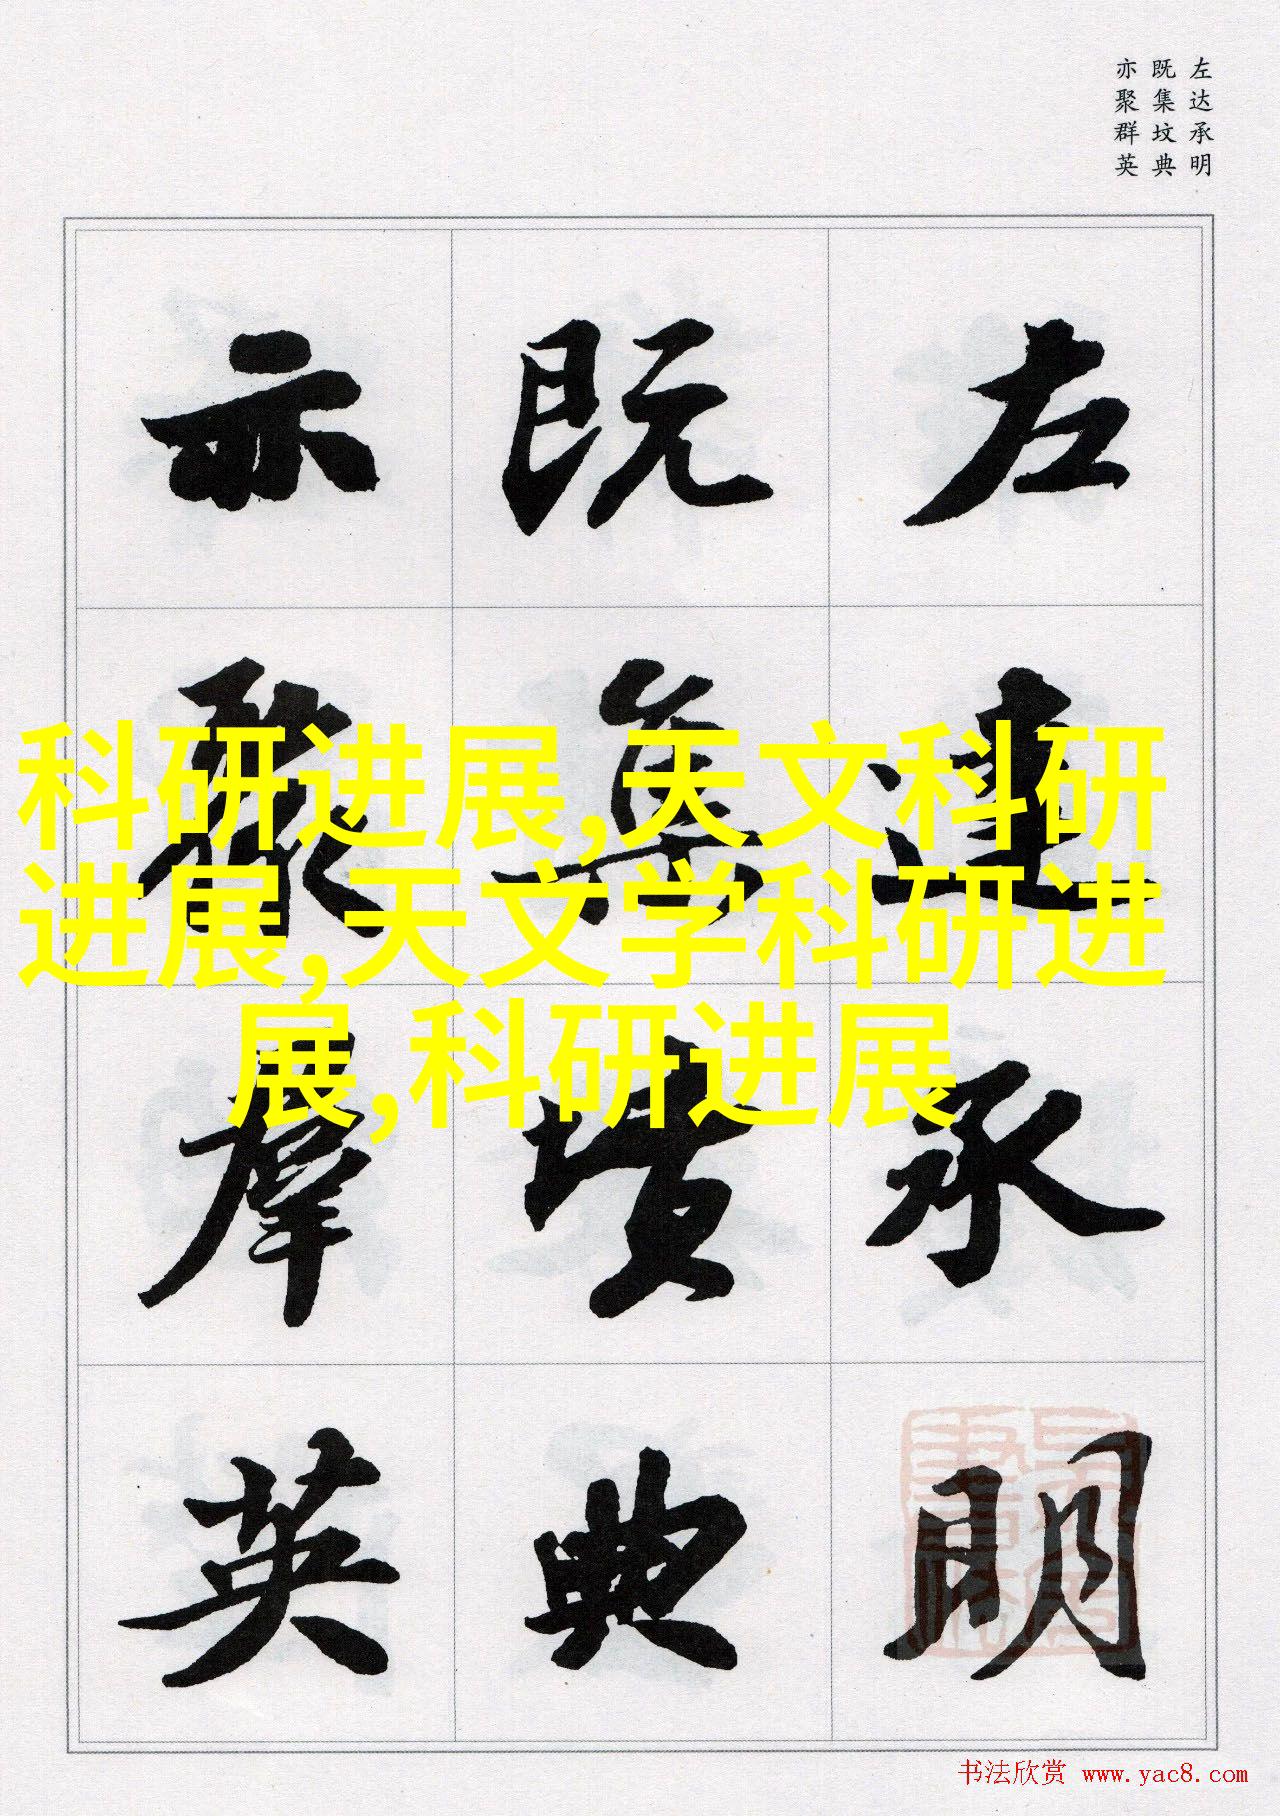 左达承明
既集坟典
亦聚群英
左達承明
既集墳典
亦聚羣英
科研进展,天文科研
进展,天文学科研进
展,科研进展
书法欣赏 www.yac8.com